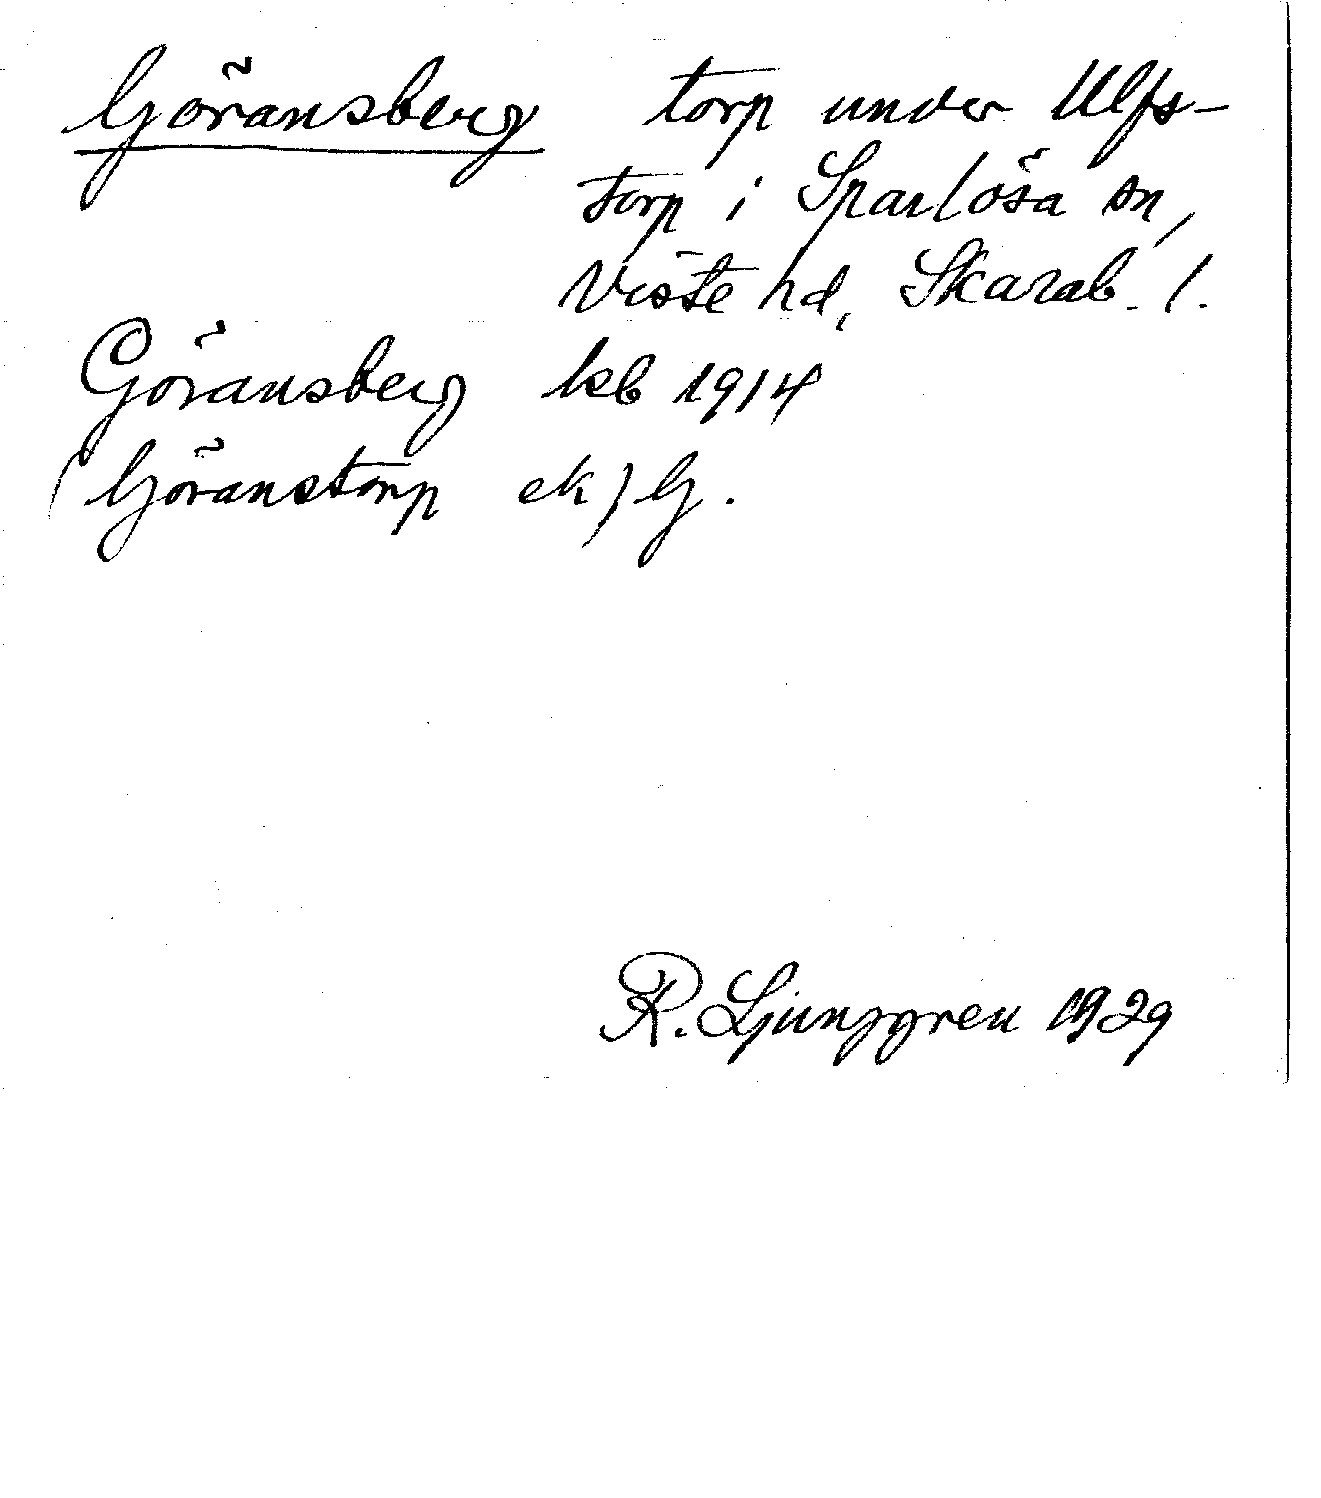 Göransberg torp under Ulfs-
torp i Sparlösa sn,
Viste hd, Skarab. l.
Göransberg kb 1914
(Göranstorp ek) G.
R. Ljunggren 1929